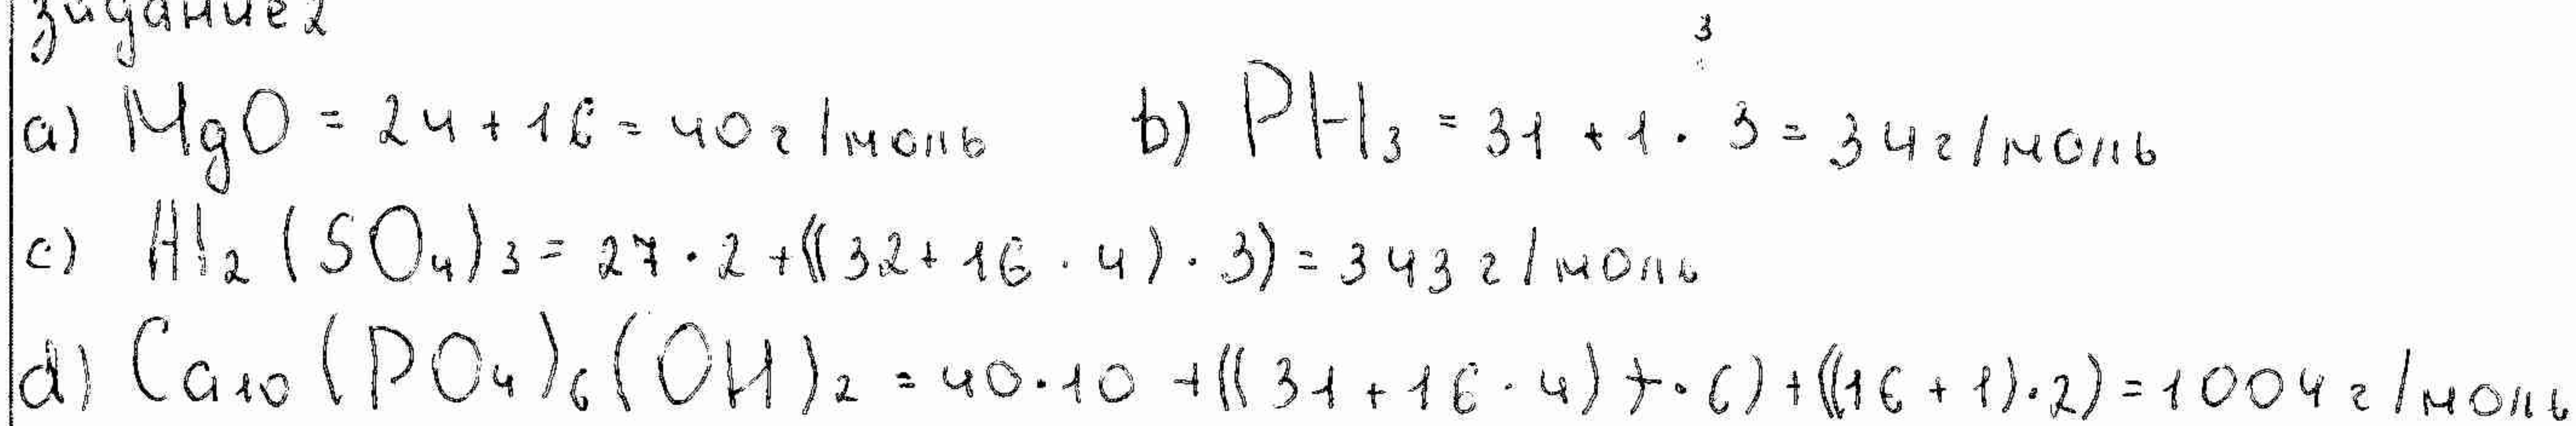 задание 2
a) MgO = 24 + 16 = 40 г/моль b) PH₃ = 31 + 1 · 3 = 34 г/моль
c) Al₂(SO₄)₃ = 27 · 2 + ((32 + 16 · 4) · 3) = 343 г/моль
d) Ca₁₀(PO₄)₆(OH)₂ = 40 · 10 + ((31 + 16 · 4) · 6) + ((16 + 1) · 2) = 1004 г/моль